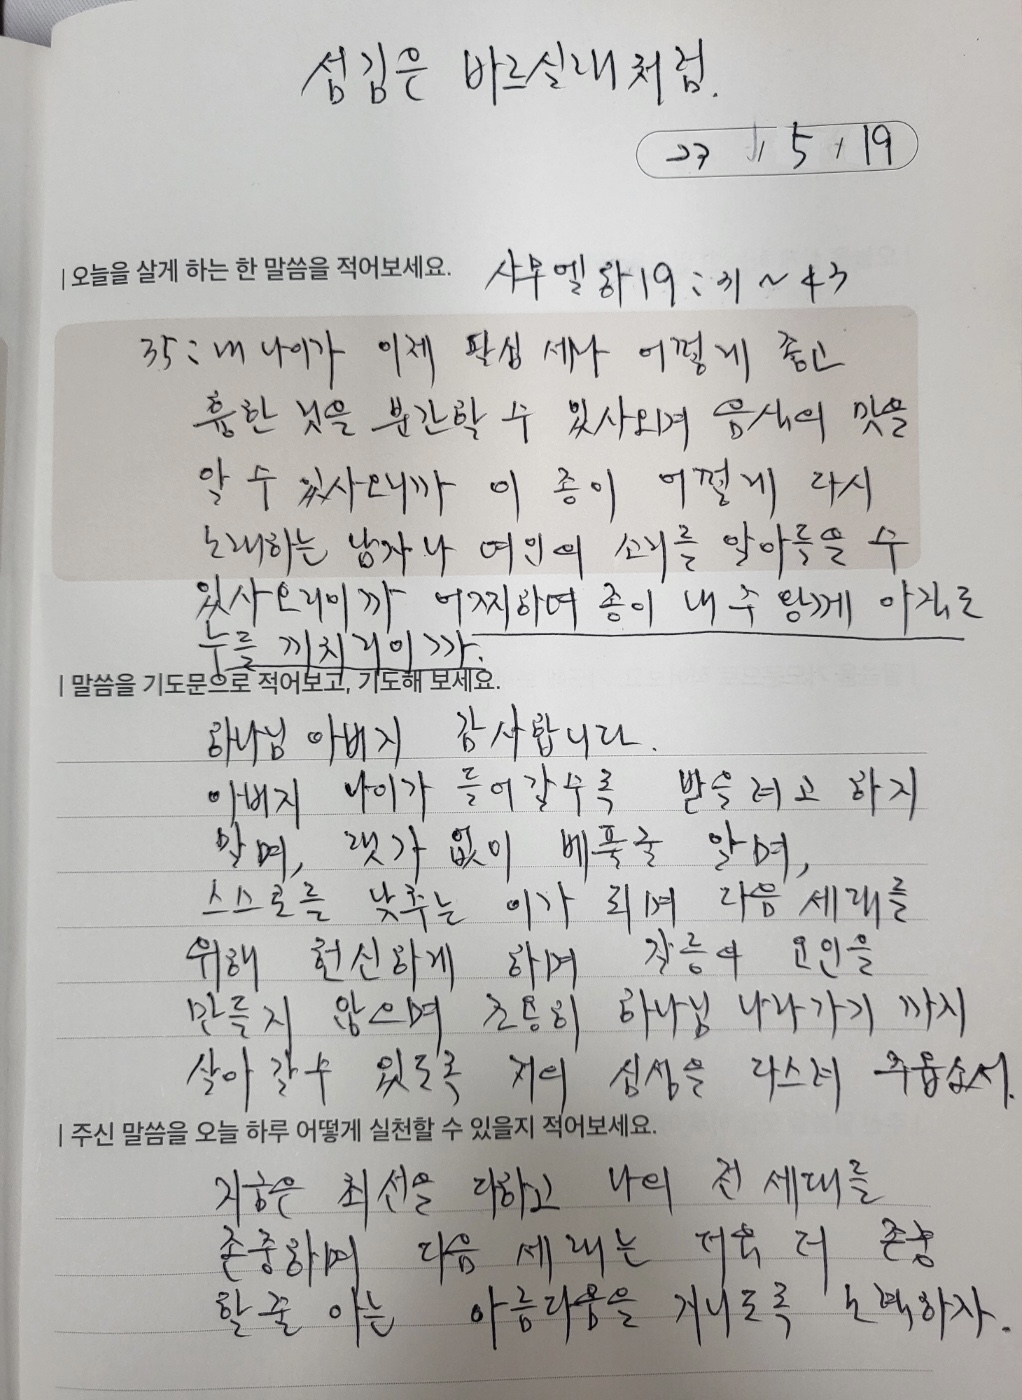 섬김은 바르실래처럼.
23 / 5 / 19
| 오늘을 살게 하는 한 말씀을 적어보세요. 사무엘하 19:31~43
35: 내 나이가 이제 팔십 세라 어떻게 좋고
흉한 것을 분간할 수 있사오며 음식의 맛을
알 수 있사오니까 이 종이 어떻게 다시
노래하는 남자나 여인의 소리를 알아들을 수
있사오리이까 어찌하여 종이 내 주 왕께 아직도
누를 끼치리이까.
| 말씀을 기도문으로 적어보고, 기도해 보세요.
하나님 아버지 감사합니다.
아버지 나이가 들어갈수록 받을려고 하지
말며, 댓가 없이 베풀줄 알며,
스스로를 낮추는 이가 되며 다음 세대를
위해 헌신하게 하며 갈등의 요인을
만들지 않으며 조용히 하나님 나라가기 까지
살아 갈수 있도록 저의 심성을 다스려 주옵소서.
| 주신 말씀을 오늘 하루 어떻게 실천할 수 있을지 적어보세요.
지금은 최선을 다하고 나의 전 세대를
존중하며 다음 세대는 더욱 더 존중
할 줄 아는 아름다움을 지니도록 노력하자.